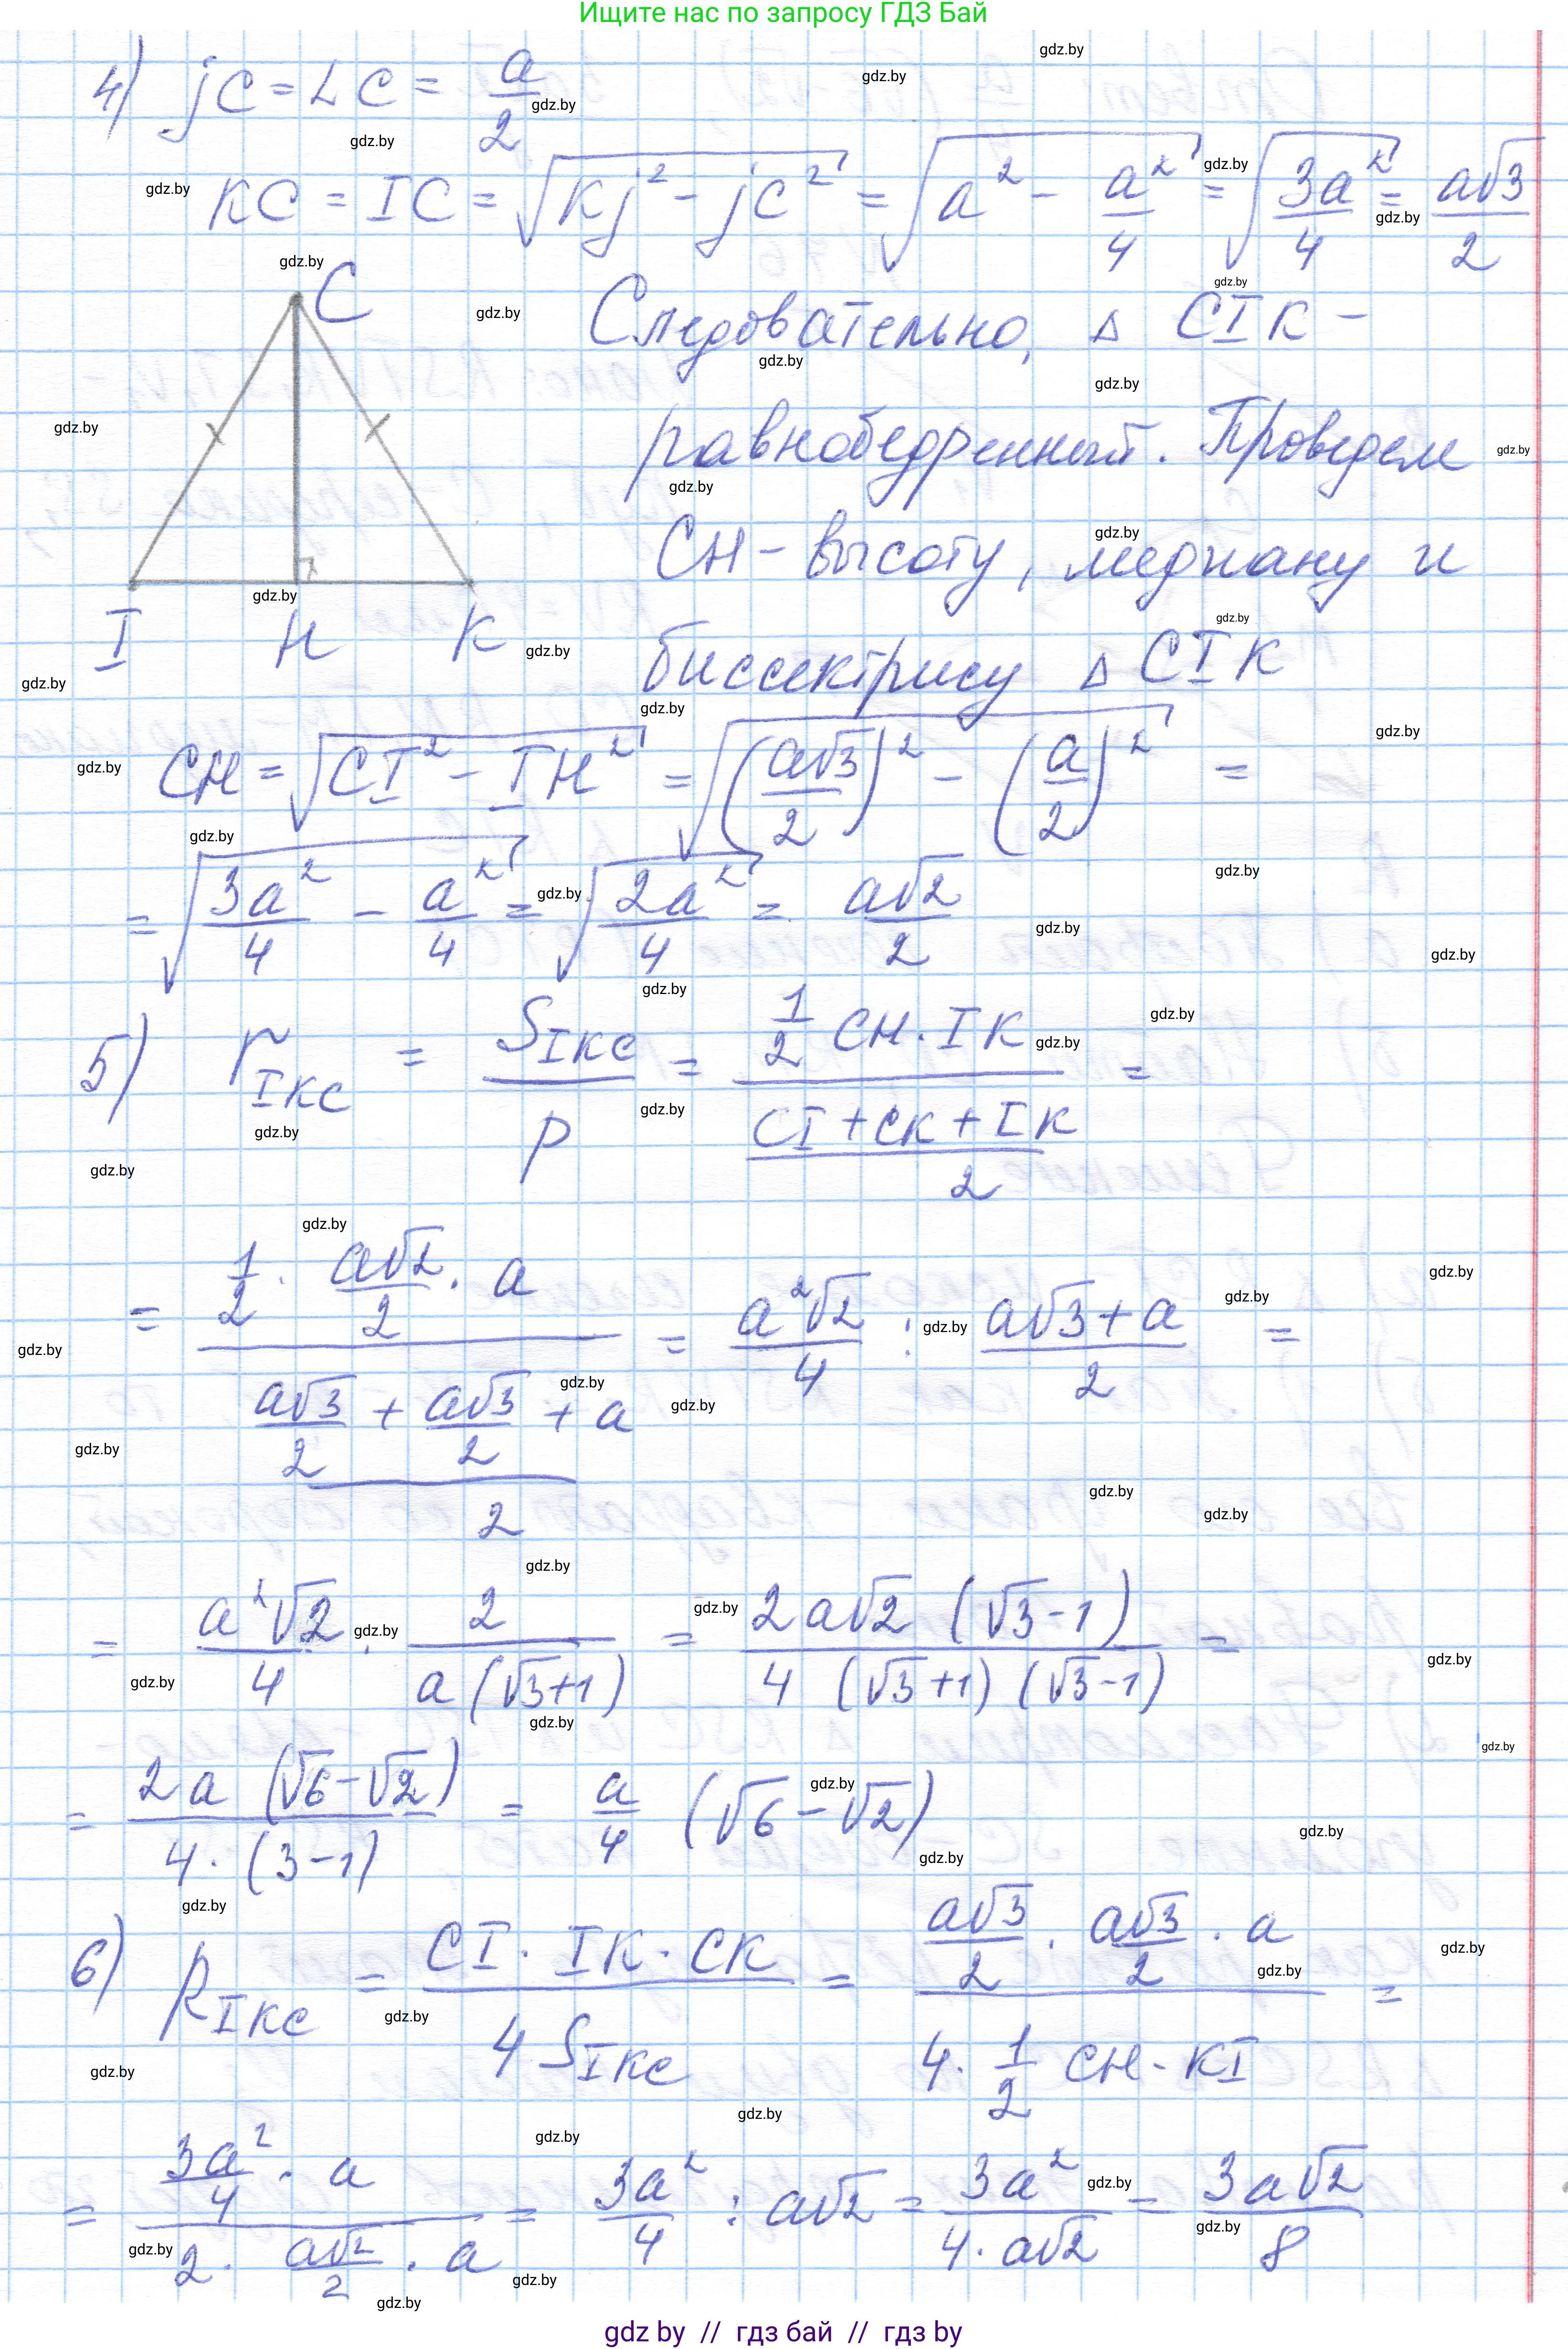 Ищите нас по запросу ГДЗ Бай
4) jC = LC = a/2
KC = IC = √(Kj² - jC²) = √(a² - a²/4) = √(3a²/4) = a√3/2
C
Следовательно, △ CIK -
равнобедренный. Проведем
CH - высоту, медиану и
I H K
биссектрису △ CIK
CH = √(CI² - IH²) = √((a√3/2)² - (a/2)²) =
= √(3a²/4 - a²/4) = √(2a²/4) = a√2/2
5) r_IKC = S_IKC / p = (1/2 CH · IK) / ((CI + CK + IK)/2) =
= (1/2 · a√2/2 · a) / ((a√3/2 + a√3/2 + a)/2) = a²√2/4 : (a√3 + a)/2 =
= a²√2/4 · 2/(a(√3+1)) = 2a√2 (√3-1) / (4 (√3+1) (√3-1)) =
= 2a (√6-√2) / (4 · (3-1)) = a/4 (√6-√2)
6) R_IKC = CI · IK · CK / (4 S_IKC) = (a√3/2 · a√3/2 · a) / (4 · 1/2 CH · KI) =
= (3a²/4 · a) / (2 · a√2/2 · a) = 3a²/4 : a√2 = 3a²/(4 · a√2) = 3a√2/8
gdz.by
gdz by // гдз бай // гдз by